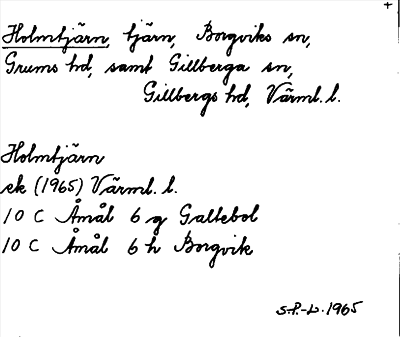 +
Holmtjärn, tjärn, Borgviks sn,
Grums hd, samt Gillberga sn,
Gillbergs hd, Värml. l.
Holmtjärn
ek (1965) Värml. l.
10 C Åmål 6 g Galtebol
10 C Åmål 6 h Borgvik
S.P.-L. 1965